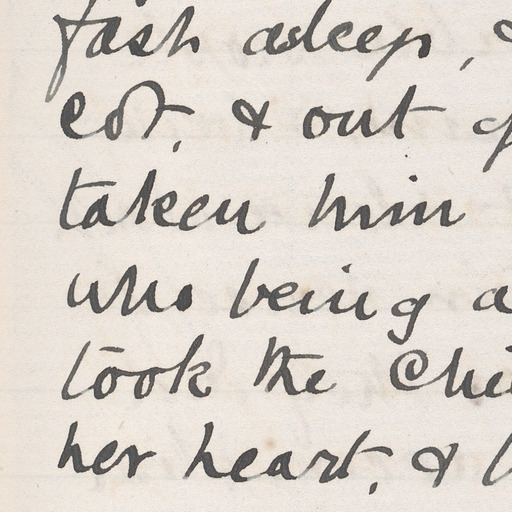 fast asleep, &
cot, & out of
taken him
who being a
took the Chi
her heart, & b